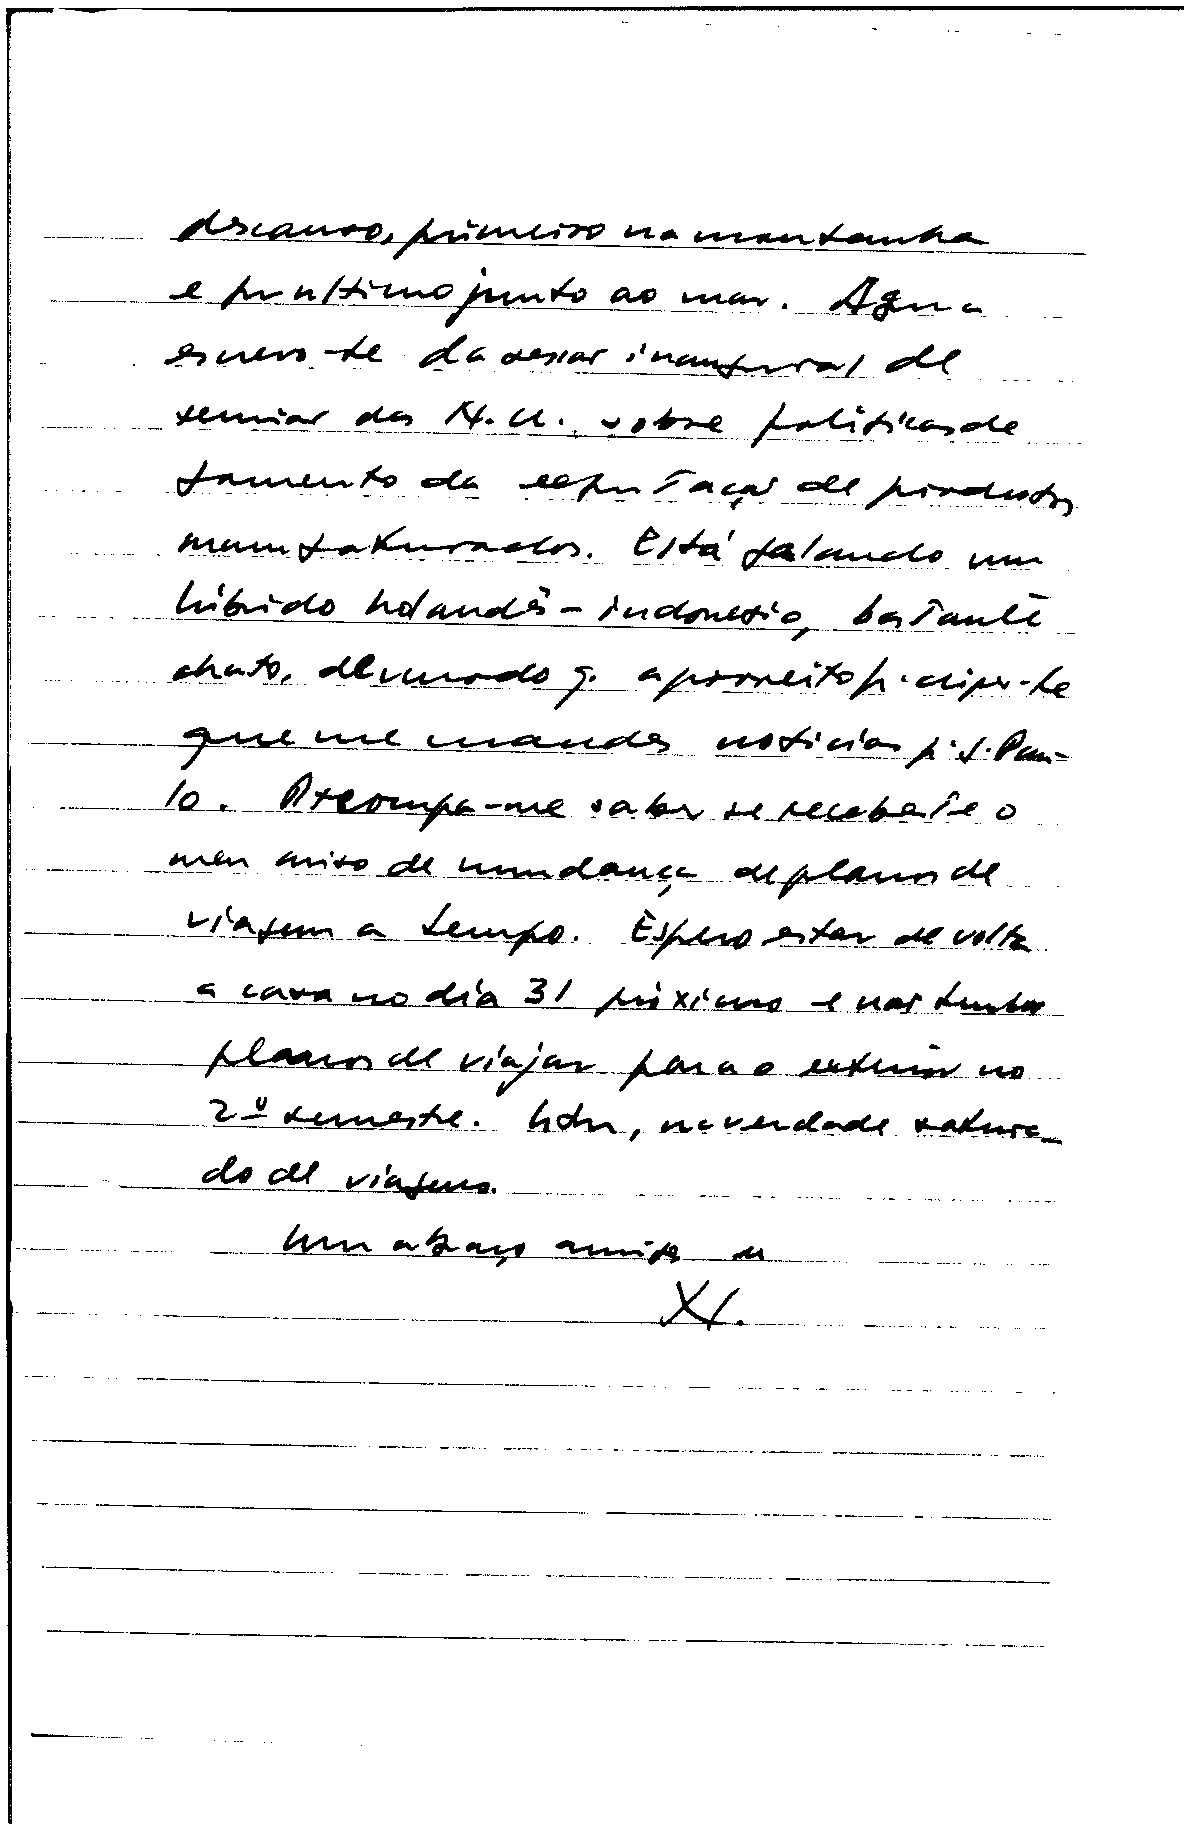 descanso, primeiro na montanha
e por último junto ao mar. Agora
escrevo-te da sessão inaugural de
seminar das N.U. sobre políticas de
fomento da exportação de productos
manufaturados. Está falando um
híbrido holandês-indonesio, bastante
chato, de modo q. aproveito p. dizer-te
que me mandes noticias p. S. Pau-
lo. Preocupa-me saber se recebeste o
meu aviso de mudança de planos de
viagem a tempo. Espero estar de volta
a casa no dia 31 próximo e não tenho
planos de viajar para o exterior no
2º semestre. Estou, na verdade satura-
do de viagens.
Um abraço amigo